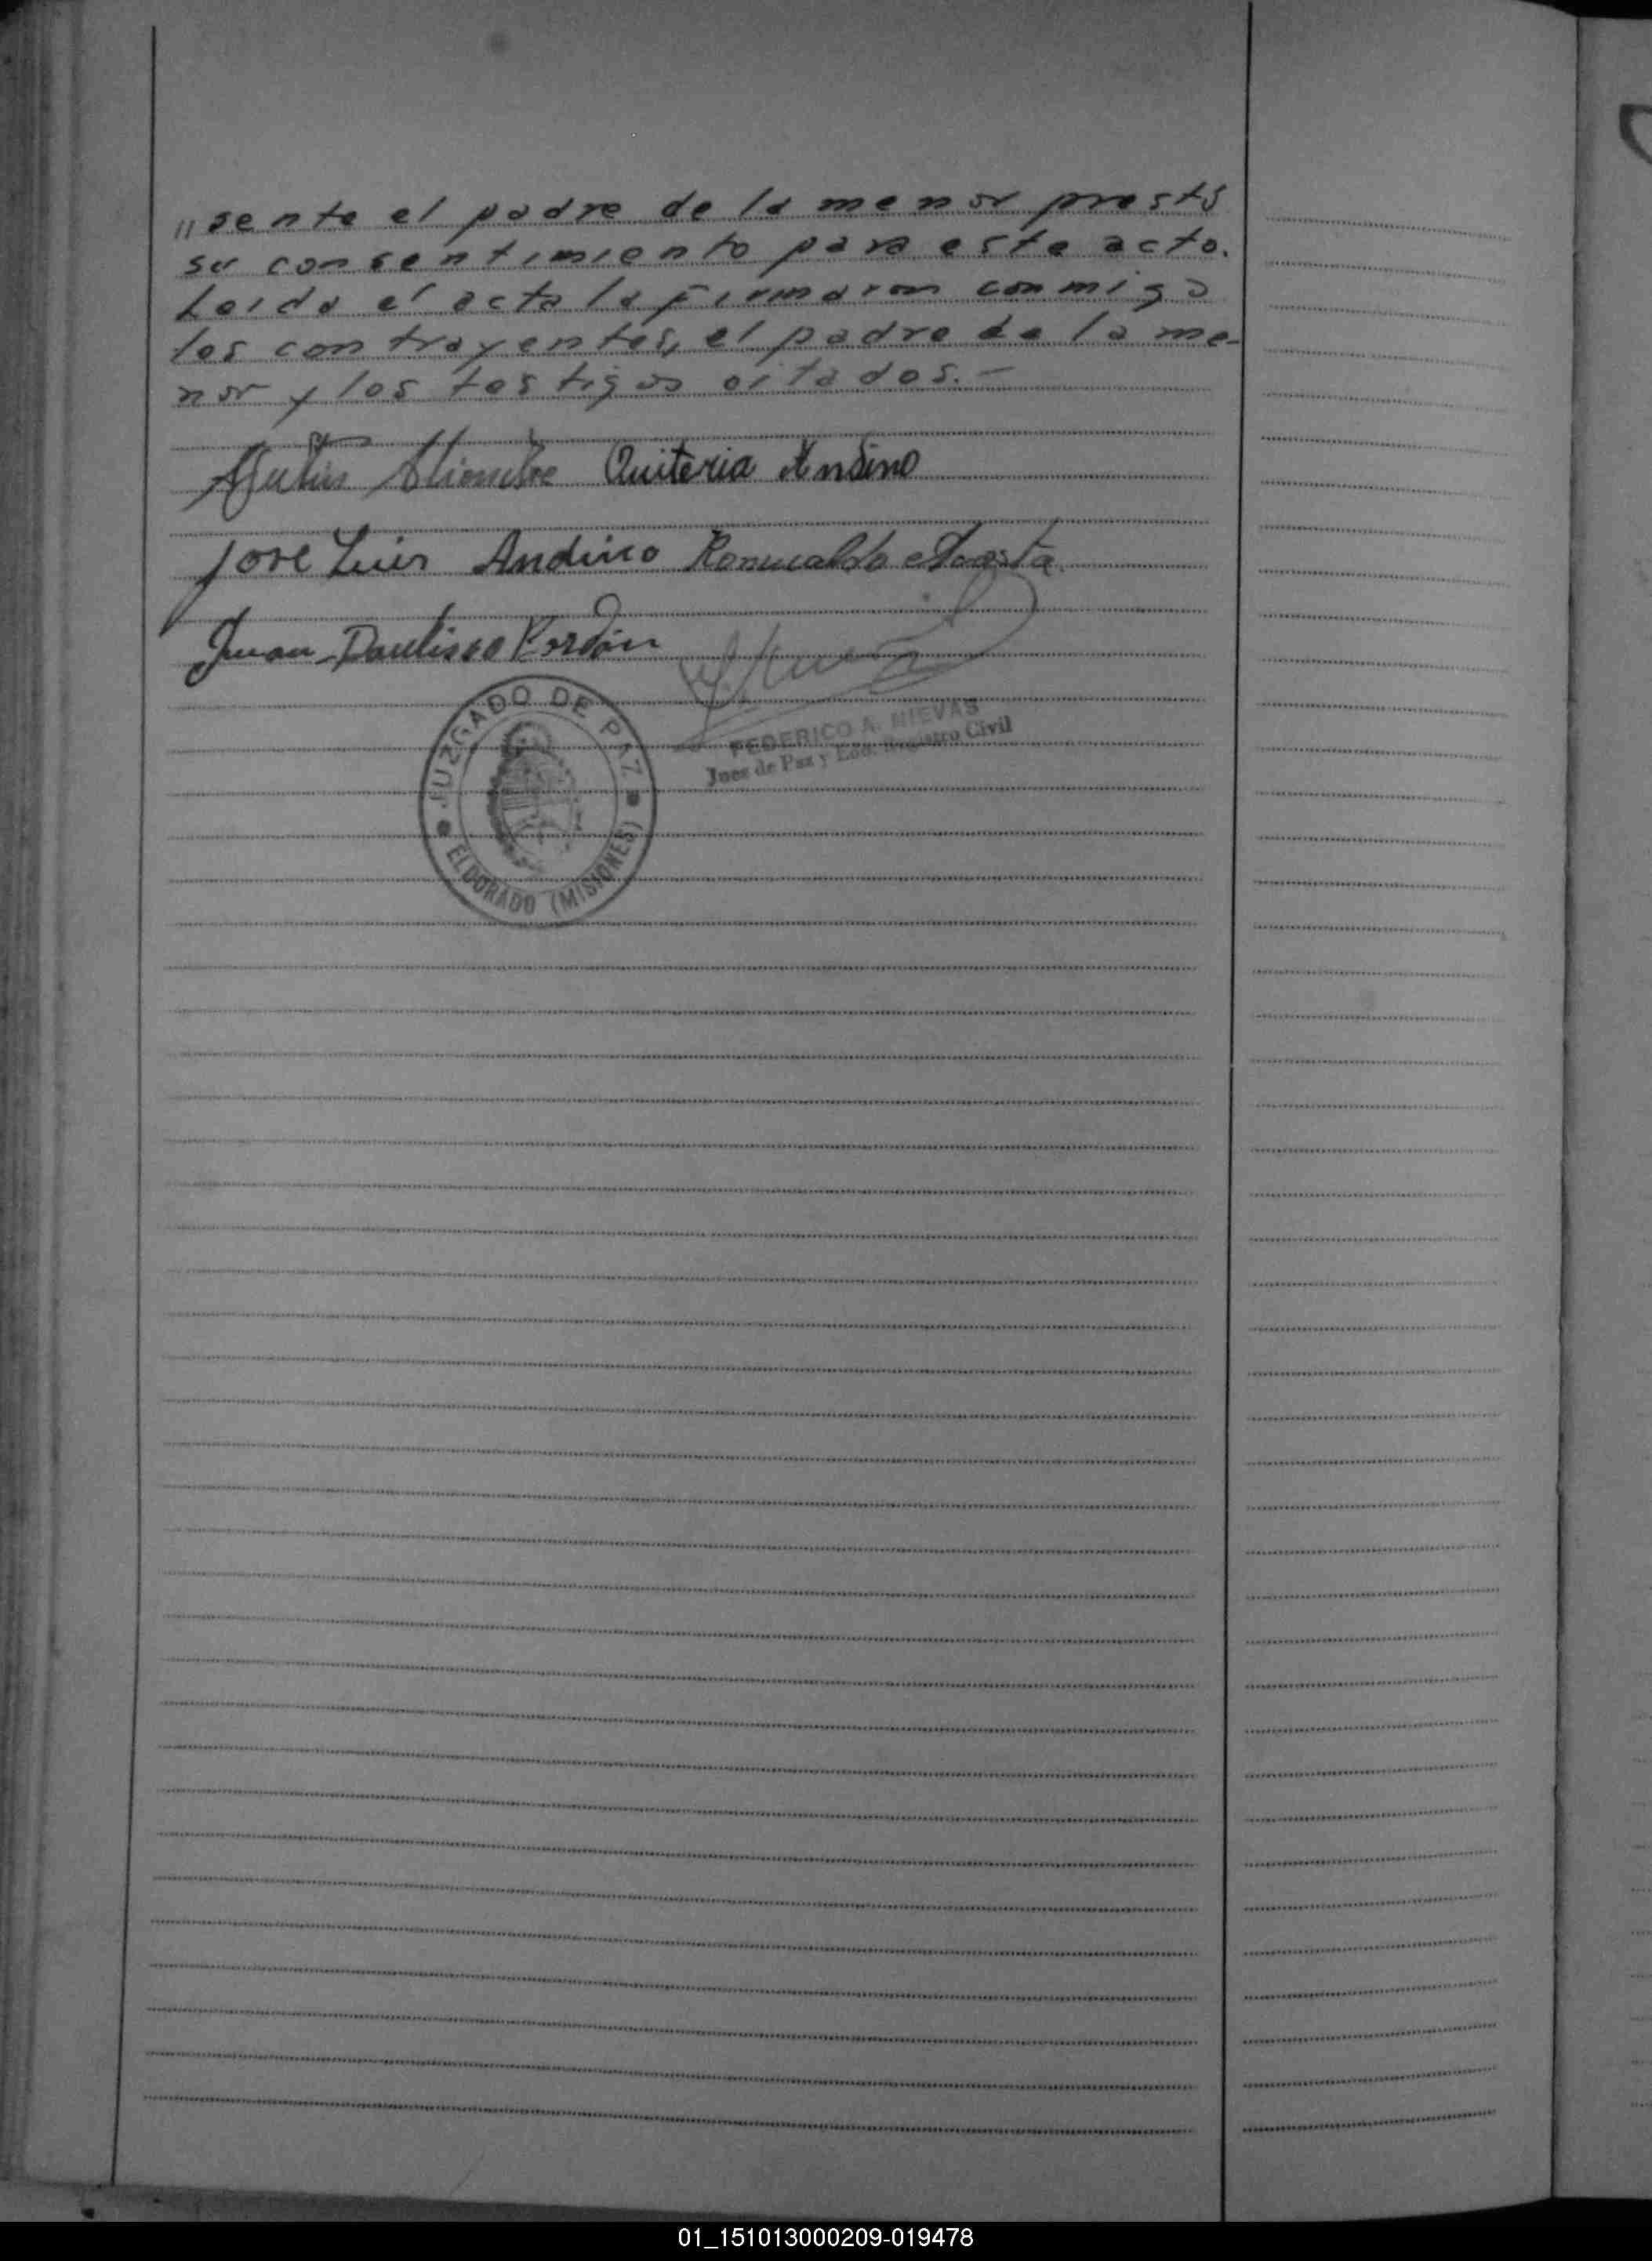 "sente el padre de la menor prestó
su consentimiento para este acto.
Leída el acta la firmaron conmigo
los contrayentes, el padre de la me-
nor y los testigos citados.-
Quiteria Andino
Jose Luis Andino Romualdo Acosta
Juan Paulino
JUZGADO DE PAZ
ELDORADO (MISIONES)
FEDERICO A. NIEVAS
Juez de Paz y Enc. Registro Civil
01_151013000209-019478